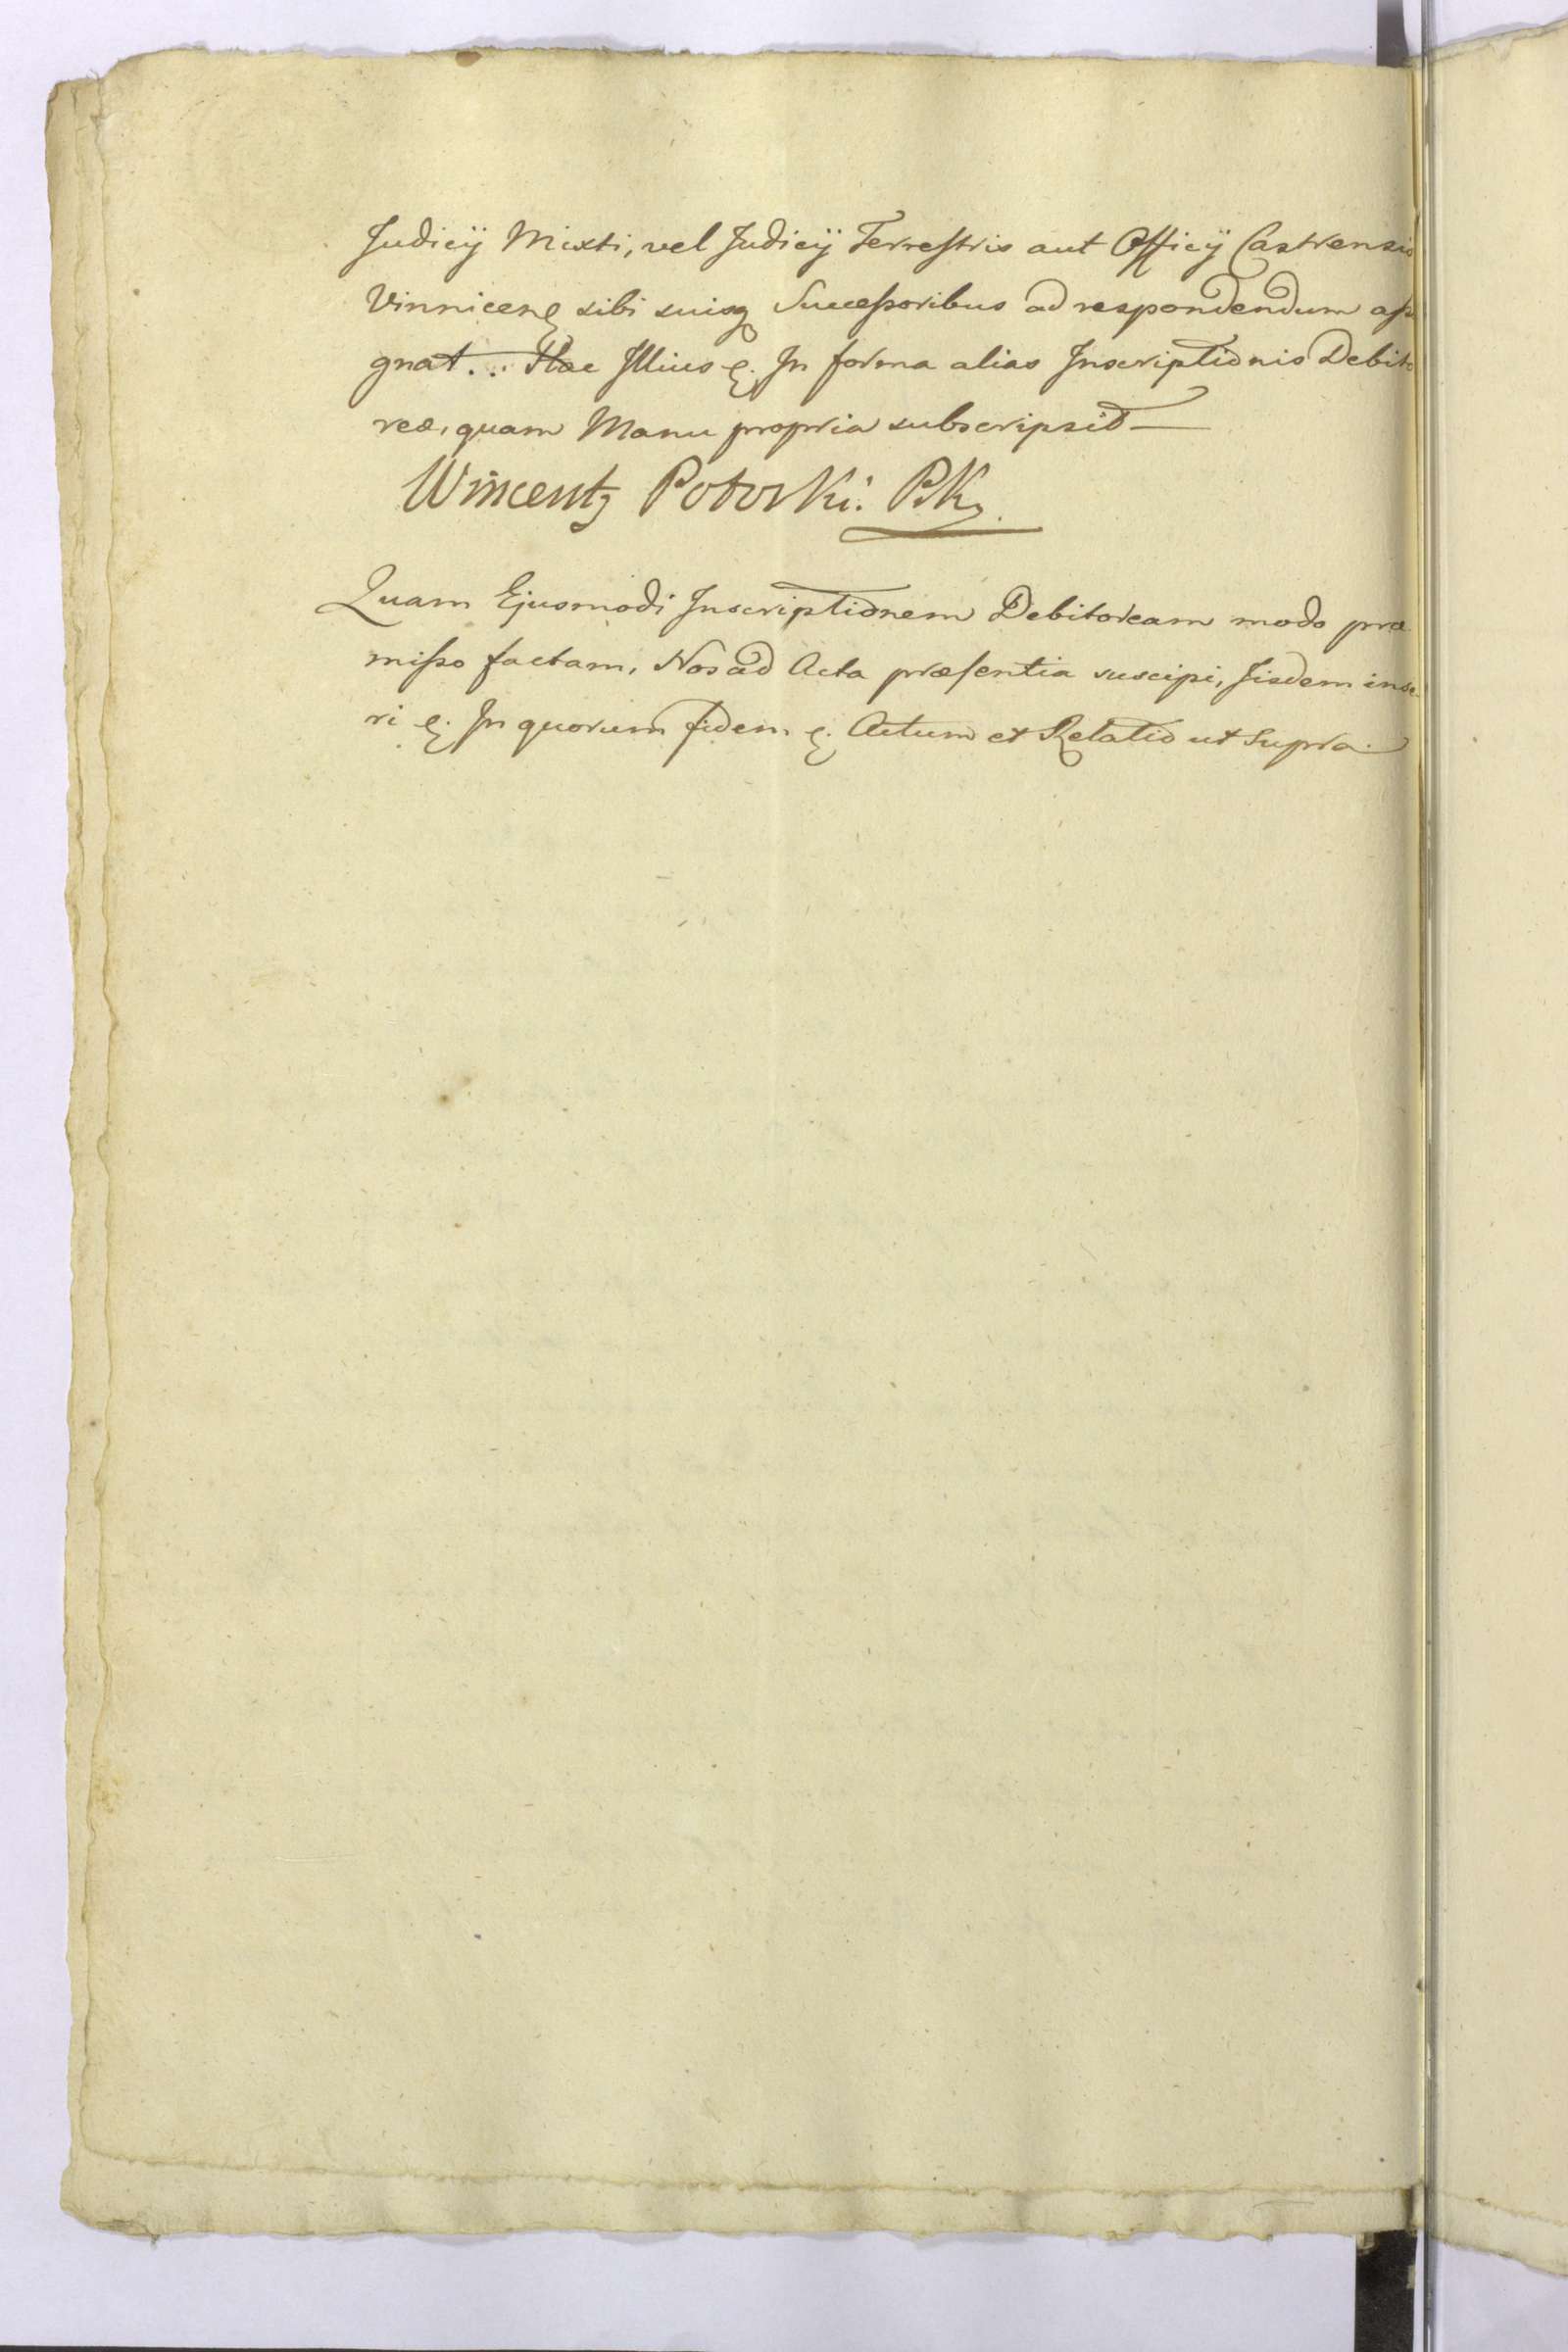 Judicij Mixti, vel Judicij Terrestris aut Officij Castrensis
Vinnicen sibi suisq Successoribus ad respondendum assi
gnat... Hac Illius e. In forma alias Inscriptionis Debito
reæ, quam Manu propria subscripsit
Wincenty Potocki. PKy.
Quam Ejusmodi Inscriptionem Debitoream modo præ
misso factam, Nos ad Acta præsentia suscipi, Iisdem inse
ri e. In quorum fidem e. Actum et Relatio ut Supra